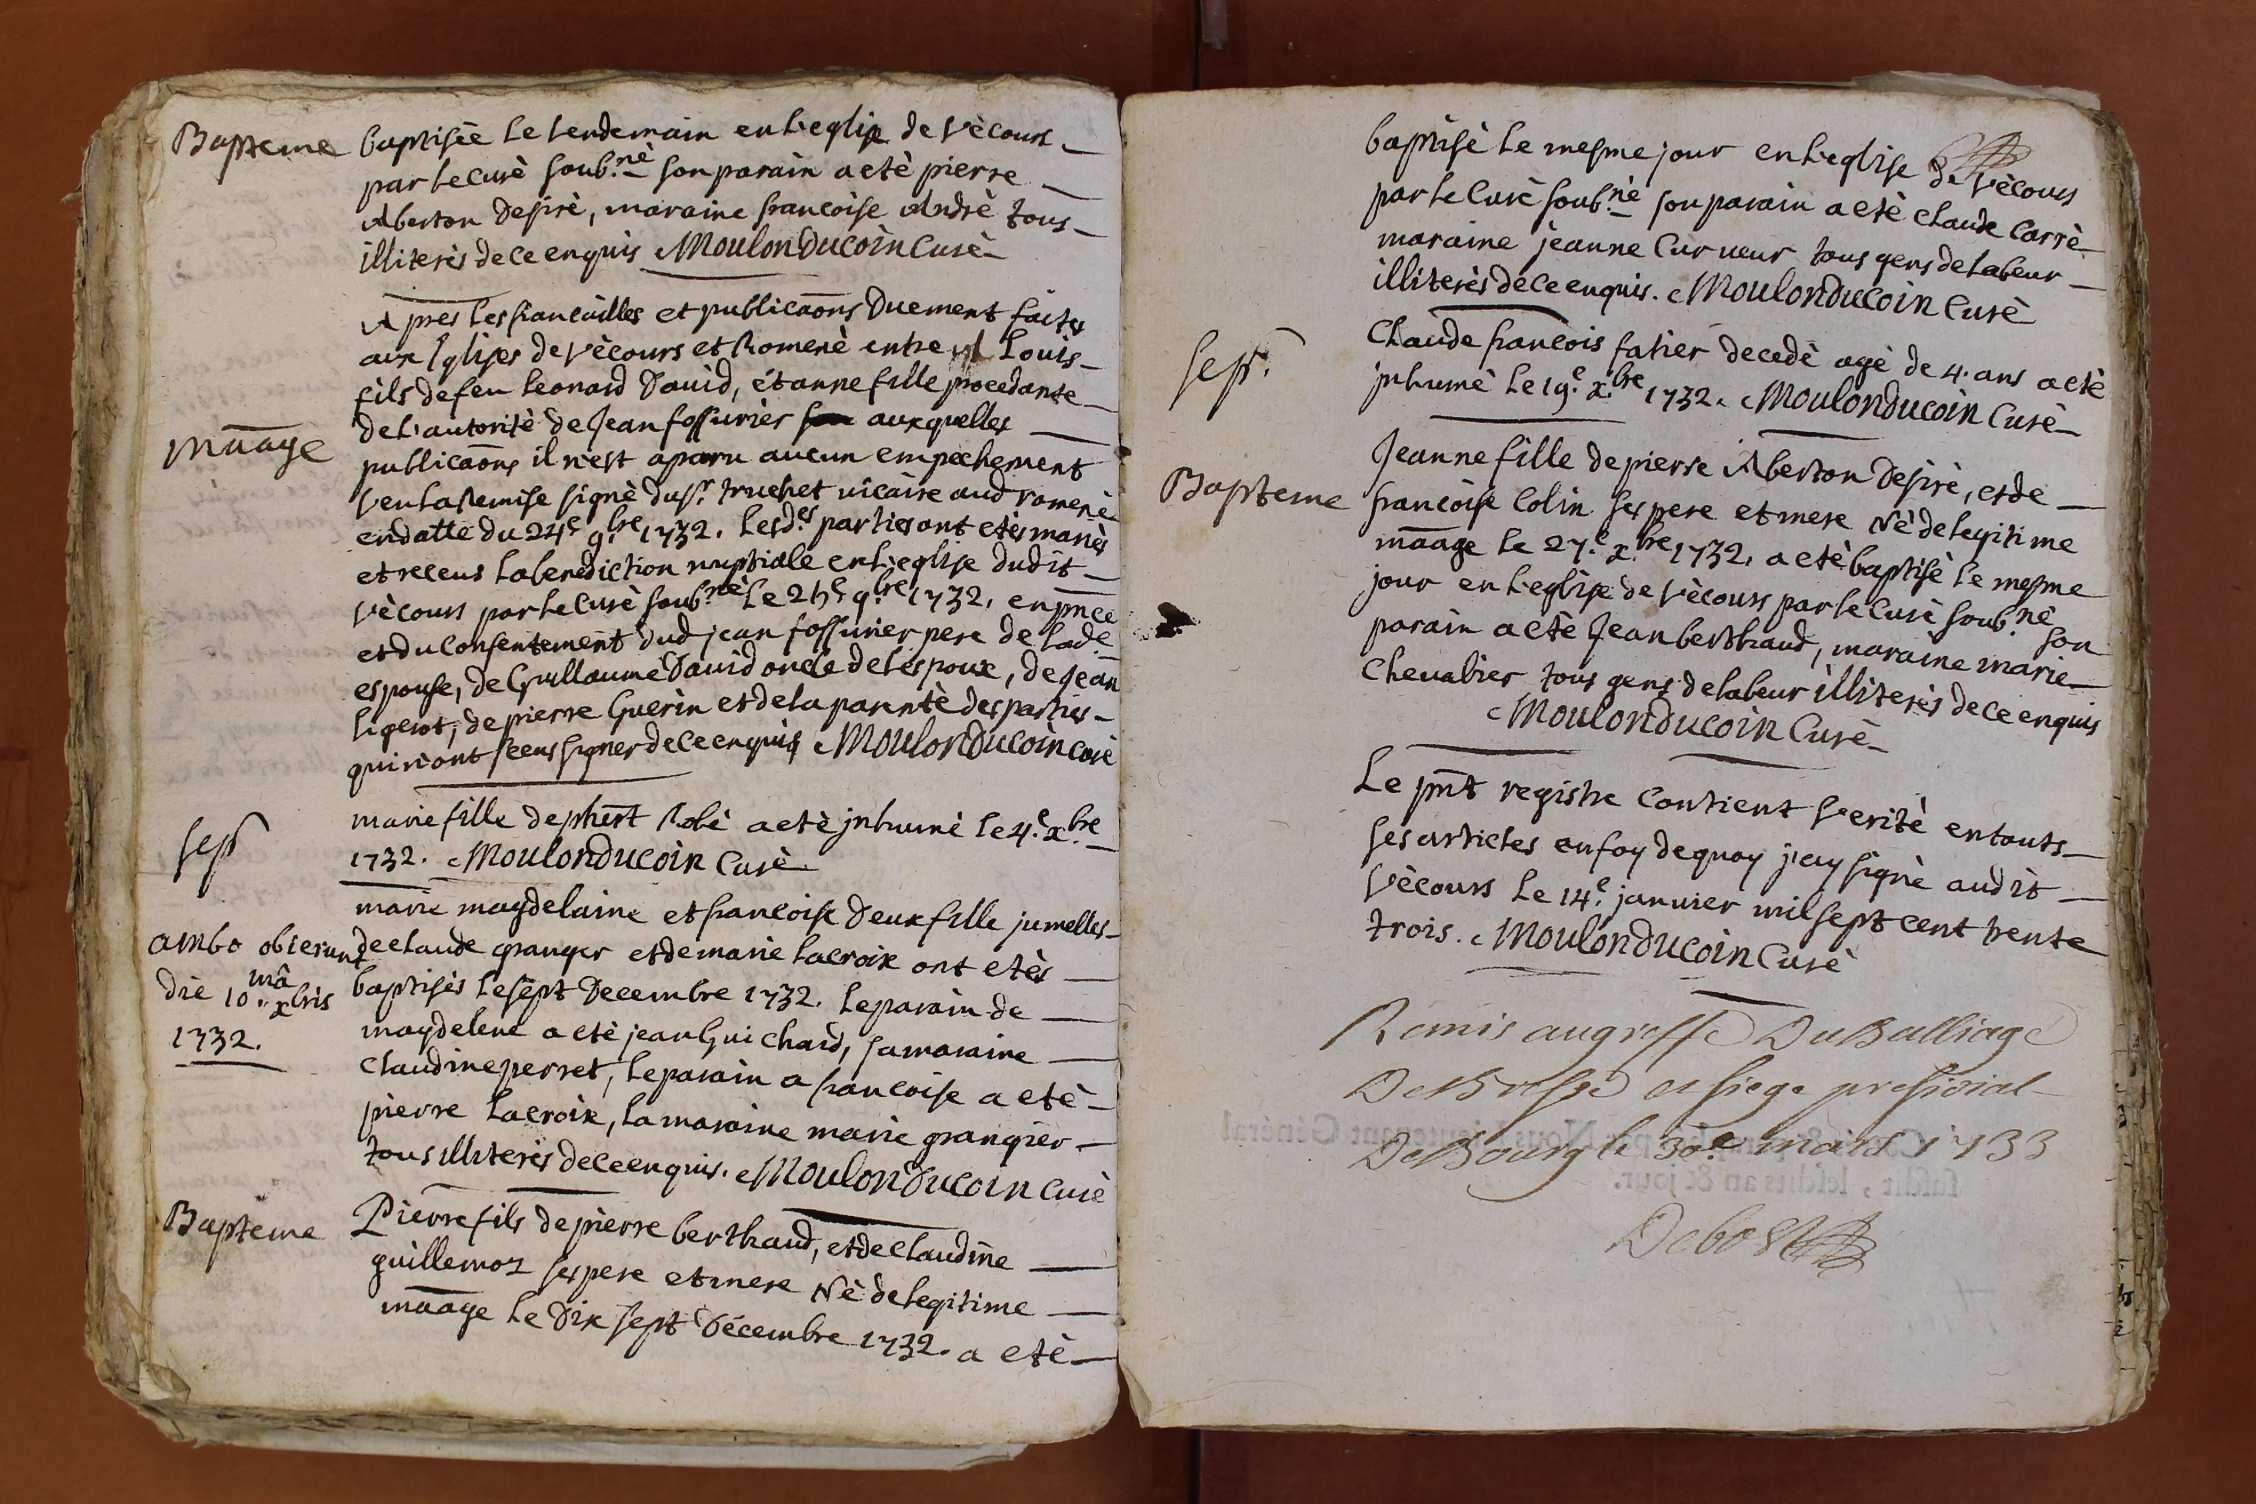 Bapteme
baptisée le lendemain en l'eglise de Vècours
par le curè soub.nè son parain a etè pierre
Aberton Desirè, maraine francoise Andrè tous
illiterès de ce enquis Moulonducoin Curè
mãage
Apres les fiancailles et publicaõns Duement faites
aux Eglises de Vècours et Romenè entre Louis
fils de feu Leonard David, et anne fille procedante
de l'autoritè de Jean fossurier auxquelles
publicaõns il n'est aparu aucun empechement
Veu la Remise signè du Sr. truchet vicaire aud romenè
en datte du 24e 9.bre 1732. lesd.es parties ont etès mariès
et receus la benediction nuptiale en l'eglise dudit
Vècours par le Curè soub.nè le 25e 9.bre 1732, en pñce
et du Consentement dud jean fossurier pere de lad.e
espouse, de Guillaume David oncle de l'espoux, de Jean
ligerot, de pierre Guerin et de la parentè des parties
qui n'ont sceus signer de ce enquis Moulonducoin Curè
sep
marie fille de phert Robè a etè jnhumè le 4.e x.bre
1732. Moulonducoin Curè
ambo obierunt
die 10.mâ xbris
1732.
marie magdelaine et francoise Deux fille jumelles
de claude granger et de marie lacroix ont etès
baptisès le sept Decembre 1732. le parain de
magdelene a etè jean Guichard, sa maraine
Claudine perret, le parain a francoise a etè
pierre lacroix, la maraine marie grangier
tous illiterès de ce enquis. Moulonducoin Curè
Bapteme
Pierre fils de pierre berthaud, et de Claudine
guillemoz ses pere et mere Nè de legitime
mãage le Dix sept Décembre 1732. a etè
baptisè le mesme jour en l'eglise de Vècours
par le Curè soub.nè son parain a etè claude Carrè
maraine jeanne Curveur tous gens de labeur
illiterès de ce enquis. Moulonducoin Curè
sep.
Claude francois fatier decedè agè de 4. ans a etè
jnhumè le 19.e x.bre 1732. Moulonducoin Curè
Bapteme
Jeanne fille de pierre Aberton Desirè, et de
francoise Colin ses pere et mere Nè de legitime
mãage le 27.e x.bre 1732. a etè baptisè le mesme
jour en l'eglise de Vècours par le Curè soub.nè son
parain a etè Jean berthaud, maraine marie
Chevalier tous gens de labeur illiterès de ce enquis
Moulonducoin Curè
Le pñt registre Contient Veritè en touts
ses articles en foy de quoy j'ay signè audit
Vècours le 14.e janvier mil sept cent trente
trois. Moulonducoin Curè
Remis au greffe Du Balliage
De Bresse et siege presidial
De Bourg le 30.e mars 1733
Debost